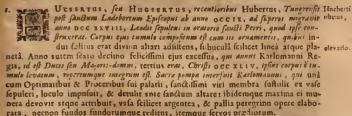 UBERTUS, seu HUGBERTUS, recentioribus Hubertus, Tungrensis
post sanctum Landebertum Episcopus ab anno DCCIX, ad superos migravit
anno DCC XXVIII, Leodii sepultus in oratorio sancti Petri, quod ipse con-
struxerat. Corpus ejus tumulo compositum est cum iis ornamentis, quibus in-
dui solitus erat divinis altari adsistens, subucula scilicet linea atque pla-
neta. Anno autem sexto decimo felicissimi ejus excessus, qui annus Karlomanni Re-
gis, id est Ducis seu Majoris-domus, tertius erat, Christi DCC XLIV, ipsius corpus è tu-
mulo levatum, repertumque integrum est. Sacræ pompæ interfuit Karlomannus, qui unà
cum Optimatibus & Proceribus sui palatii, sanctissimi viri membra sustulit ex vase
sepulcri, loculo imposuit, & demùm ante sanctum altare: ibidemque maxima ei mu-
nera devovit atque attribuit, vasa scilicet argentea, & pallia peregrino opere elabo-
rata, necnon fundos fundorumque reditus, itemque servos prædiorum.
Huberti
obitus,
elevatio.